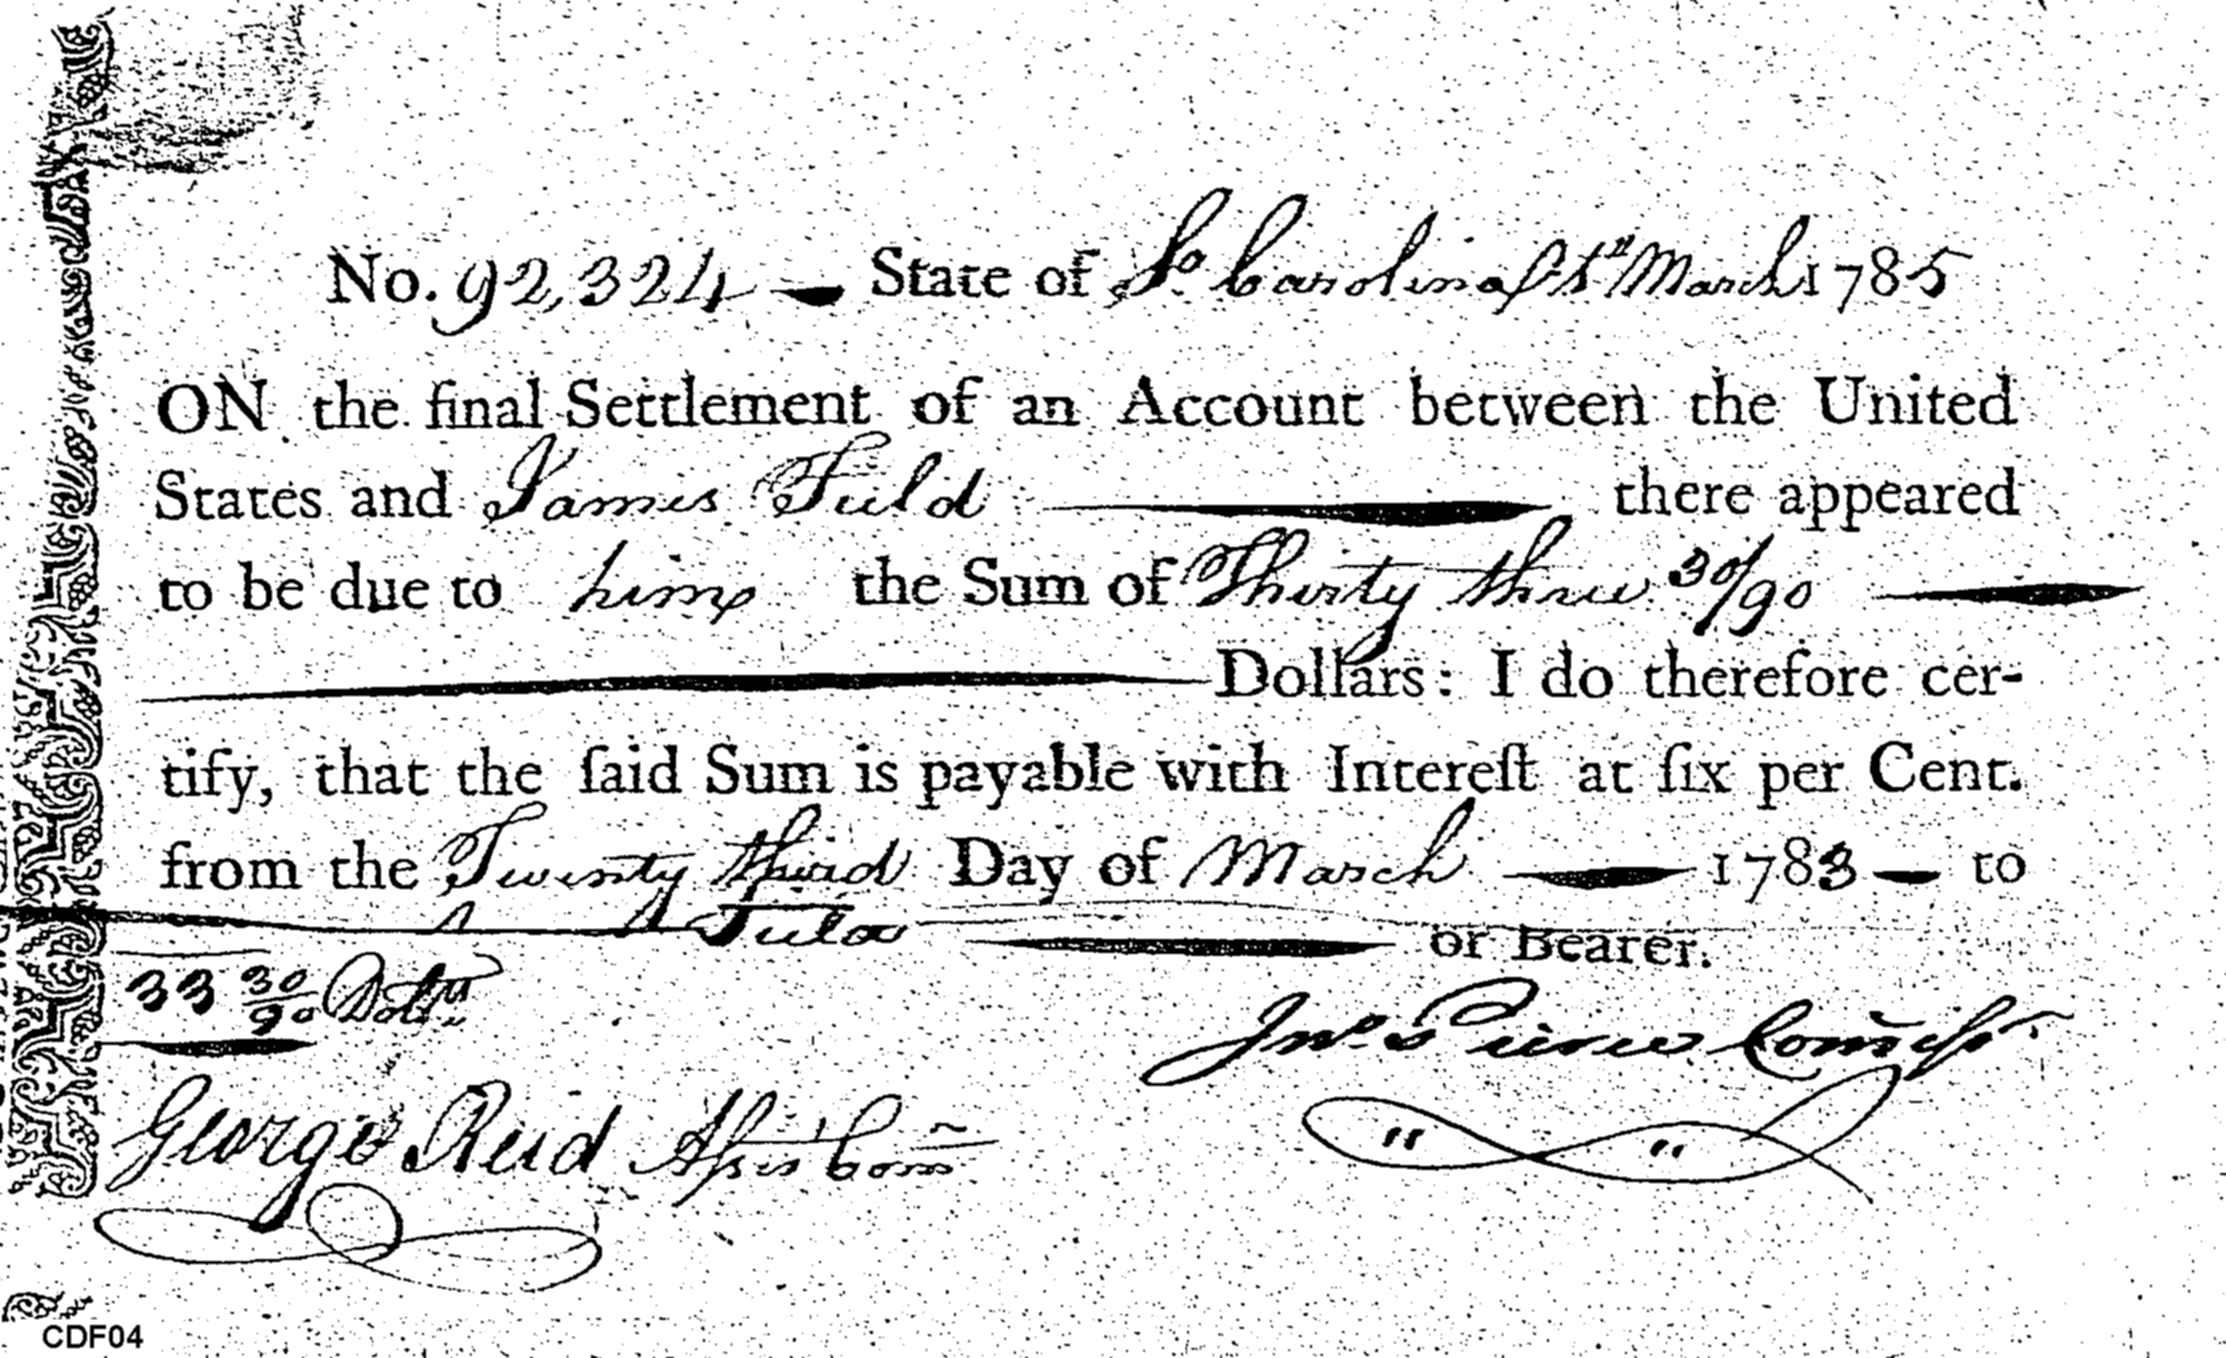 No. 92,324 State of So. Carolina 1st March 1785
ON the final Settlement of an Account between the United
States and James Field there appeared
to be due to him the Sum of Thirty three 30/90
Dollars: I do therefore cer-
tify, that the ſaid Sum is payable with Intereſt at ſix per Cent.
from the Twenty third Day of March 1783 to
or Bearer.
33 30/90 Dollrs
Jno. Pierce Commissr.
George Reid Assist Com
CDF04